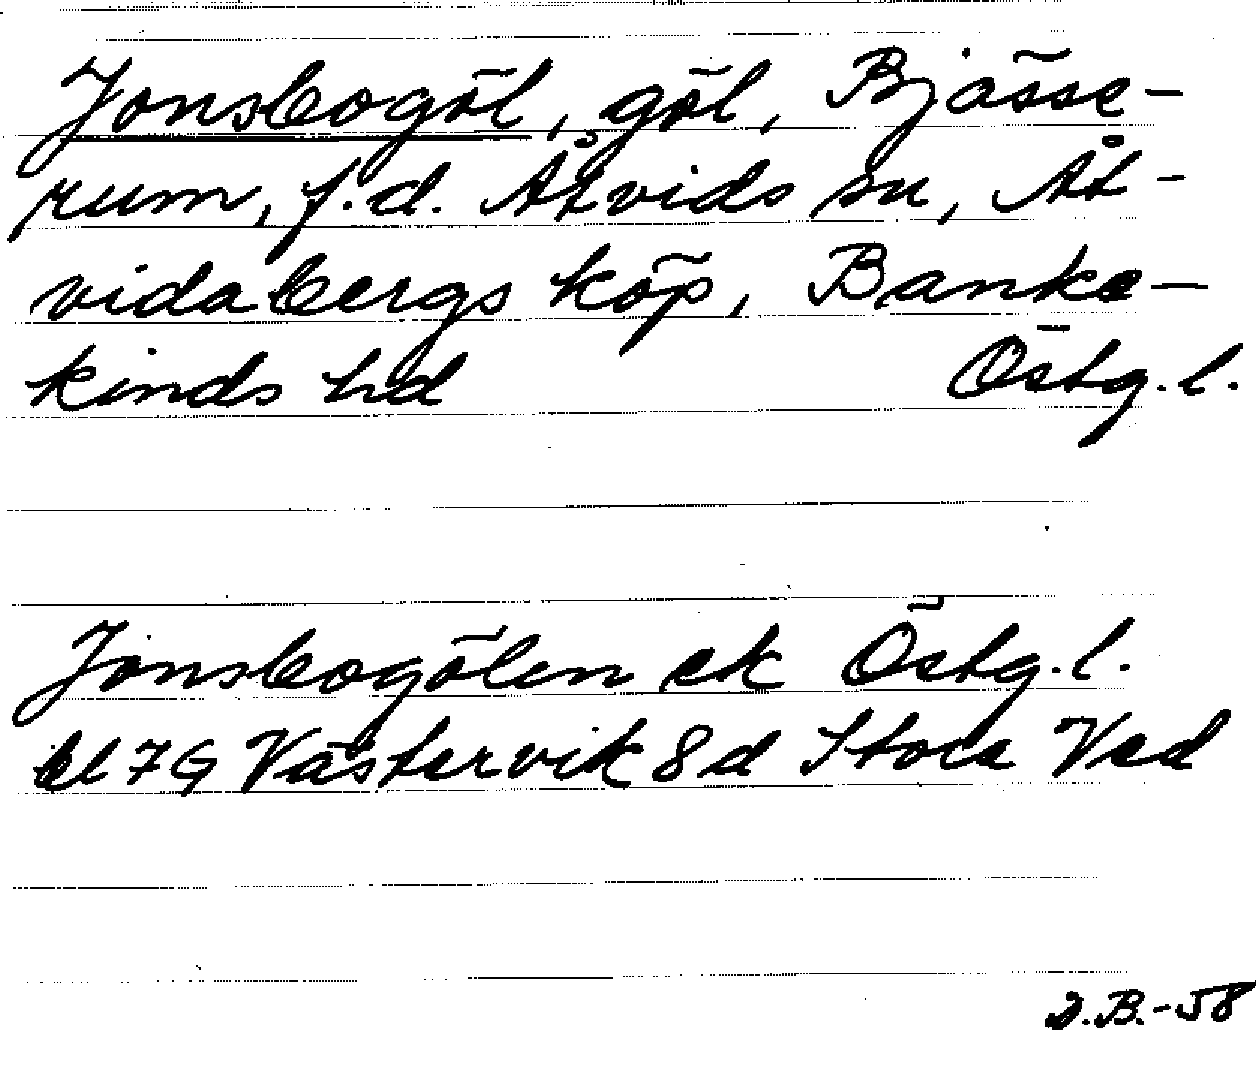 Jonsbogöl, göl, Bjässe-
rum, f.d. Åtvids sn, Åt-
vidabergs köp, Banke-
kinds hd Östg.l.
Jonsbogölen ek Östg.l.
bl 7G Västervik 8d Stora Ved
D.B.-58